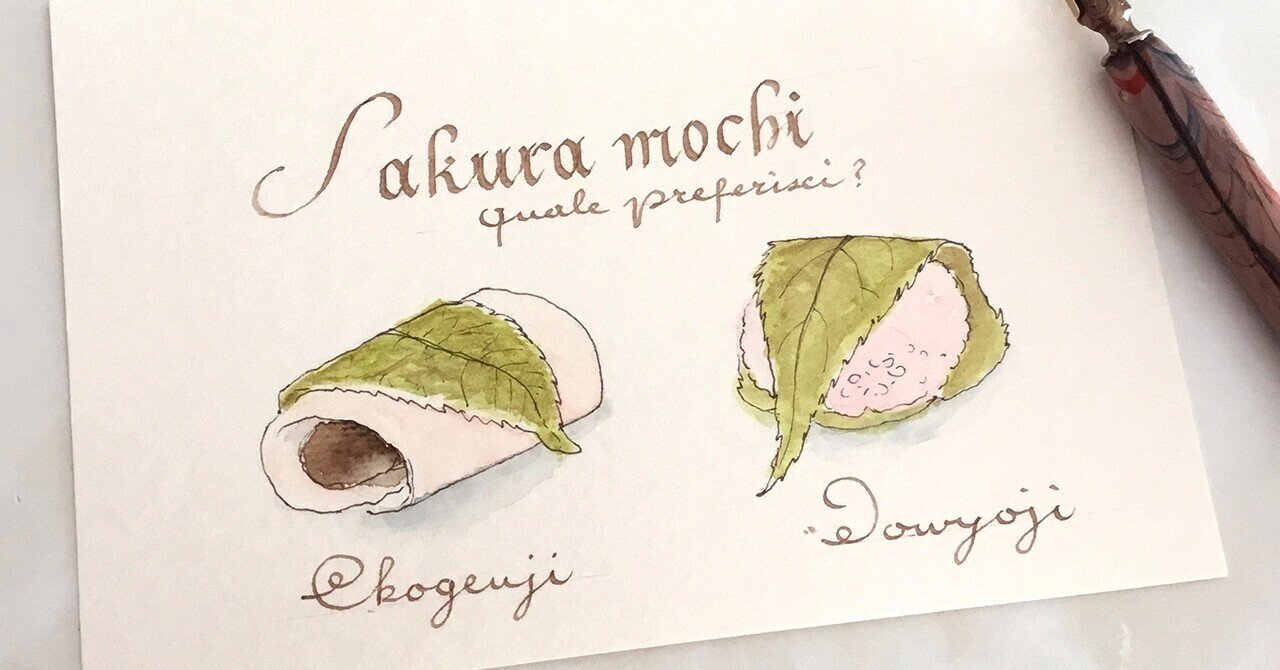 Sakura mochi
quale preferisci?
Chogenji
Dowyoji